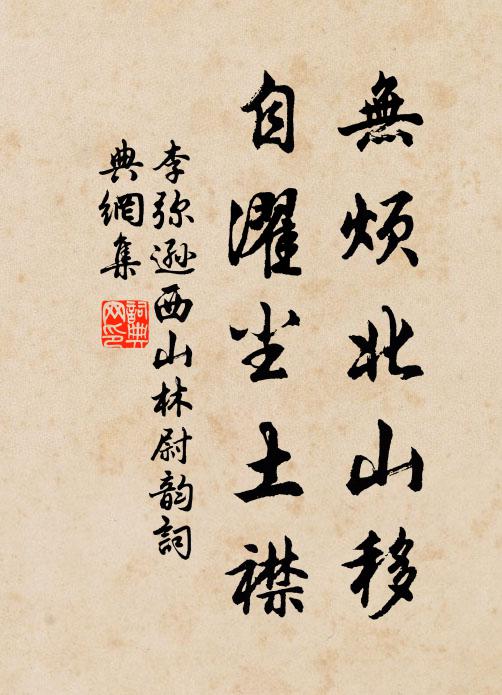 無煩北山移
自濯尘土襟
李弥遜西山林尉韵詞
典網集
詞典
网印